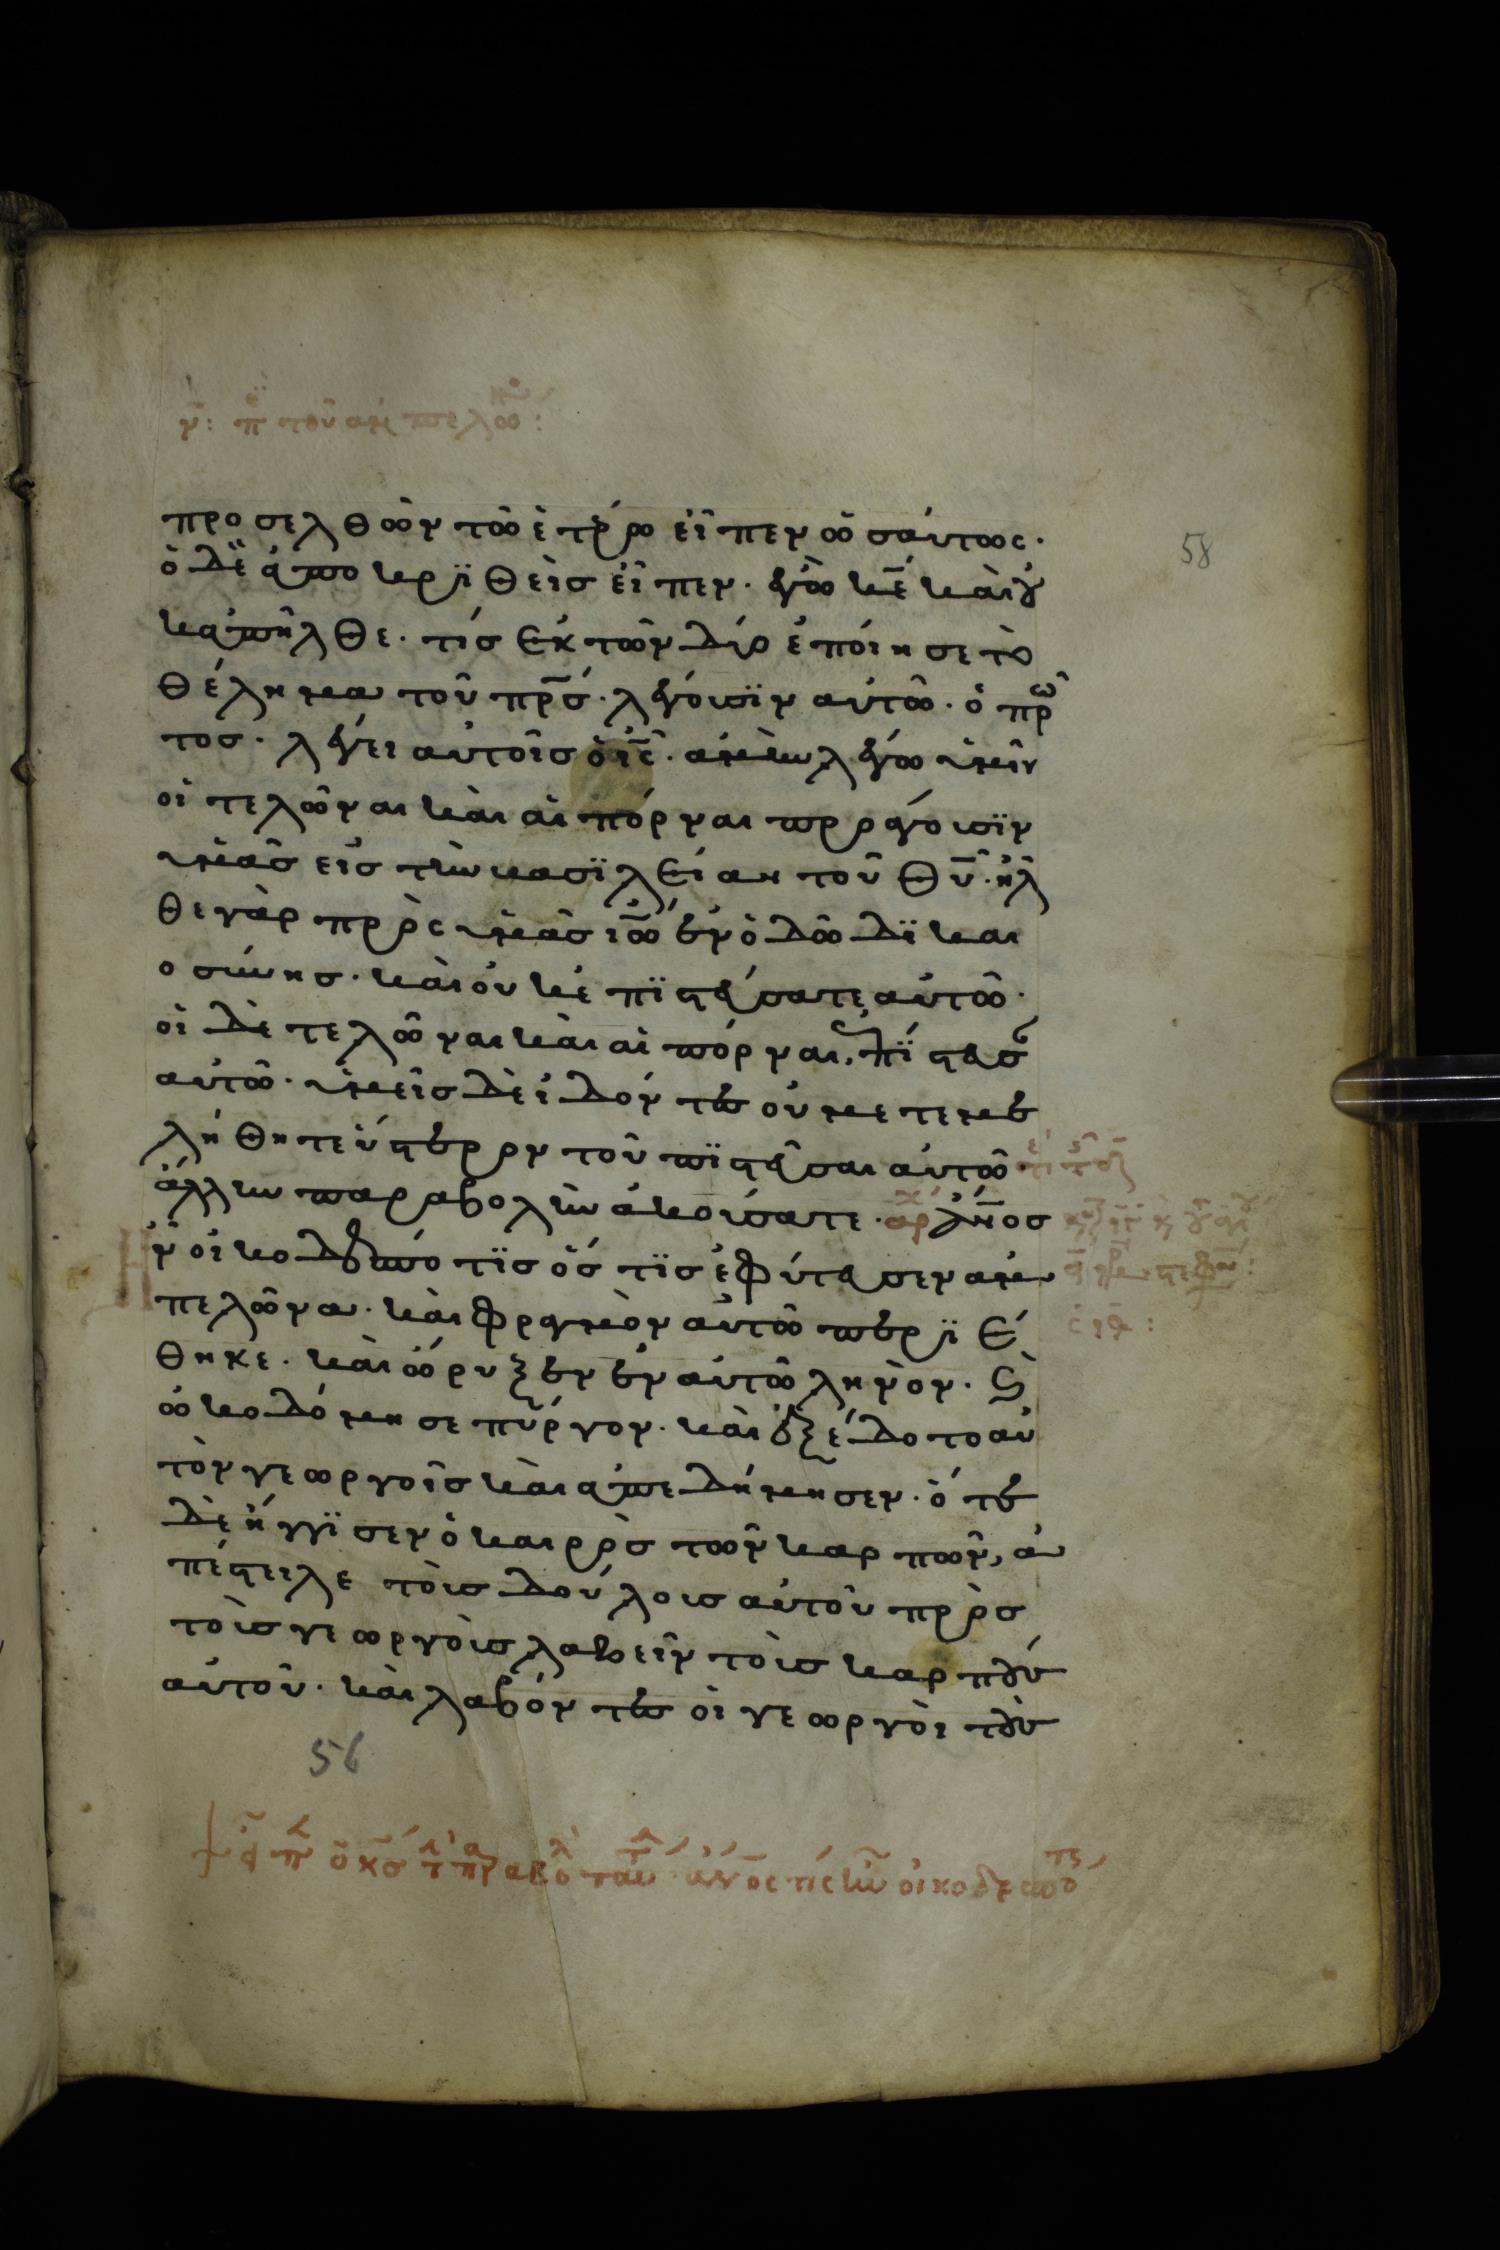 ν: π τοῦ ἀμπελῶ:
58
προσελθὼν τῶ ἑτέρω εἶπεν ὡσαύτως·
ὁ δὲ ἀποκριθεὶς εἶπεν· ἐγὼ κ̅ε̅ καὶ οὐ
κ ἀπῆλθε· τίς ἐκ τῶν δύο ἐποίησε τὸ
θέλημα τοῦ π̅ρ̅ς̅· λέγουσϊν αὐτῶ· ὁ πρῶ
τος· λέγει αὐτοῖς ὁ ι̅ς̅· ἀμὴν λέγω ὑμῖν
οἱ τελῶναι καὶ αἱ πόρναι προάγουσϊν
ὑμᾶς εἰς τὴν βασϊλείαν τοῦ θ̅υ̅· ἦλ
θε γὰρ πρὸς ὑμᾶς ἰ̅ω̅ ἐν ὁδῶ δϊκαι
οσύνης· καὶ οὐκ ἐπϊστεύσατε αὐτῶ·
οἱ δὲ τελῶναι καὶ αἱ πόρναι, ἐπΐστευσ
αὐτῶ· ὑμεῖς δὲ ἰδόντες οὐ μετεμε
λήθητε ὕστερον τοῦ πϊστεῦσαι αὐτῶ
ἄλλην παραβολὴν ἀκούσατε· ἀρχ ἄν̅ο̅ς
ἦν οἰκοδεσπότϊς ὅστϊς ἐφύτευσεν ἀμ
πελῶνα· καὶ φραγμὸν αὐτῶ περϊέ
θηκε· καὶ ὤρυξεν ἐν αὐτῶ ληνὸν· ϛ̀
ὠκοδόμησε πύργον· καὶ ἐξέδοτο αὐ
τὸν γεωργοῖς καὶ ἀπεδήμησεν· ὅτε
δὲ ἤγγϊσεν ὁ καιρὸς τῶν καρπῶν, ἀ
πέστειλε τοὺς δούλους αὐτοῦ πρὸς
τοὺς γεωργοὺς λαβεῖν τοὺς καρποὺς
αὐτοῦ· καὶ λαβόντες οἱ γεωργοὶ τοὺς
56
εἶπ ὁ κ̅ς̅ τ παραβολ ταύτ· ἄν̅ο̅ς τίς ἦν οἰκοδεσπότς